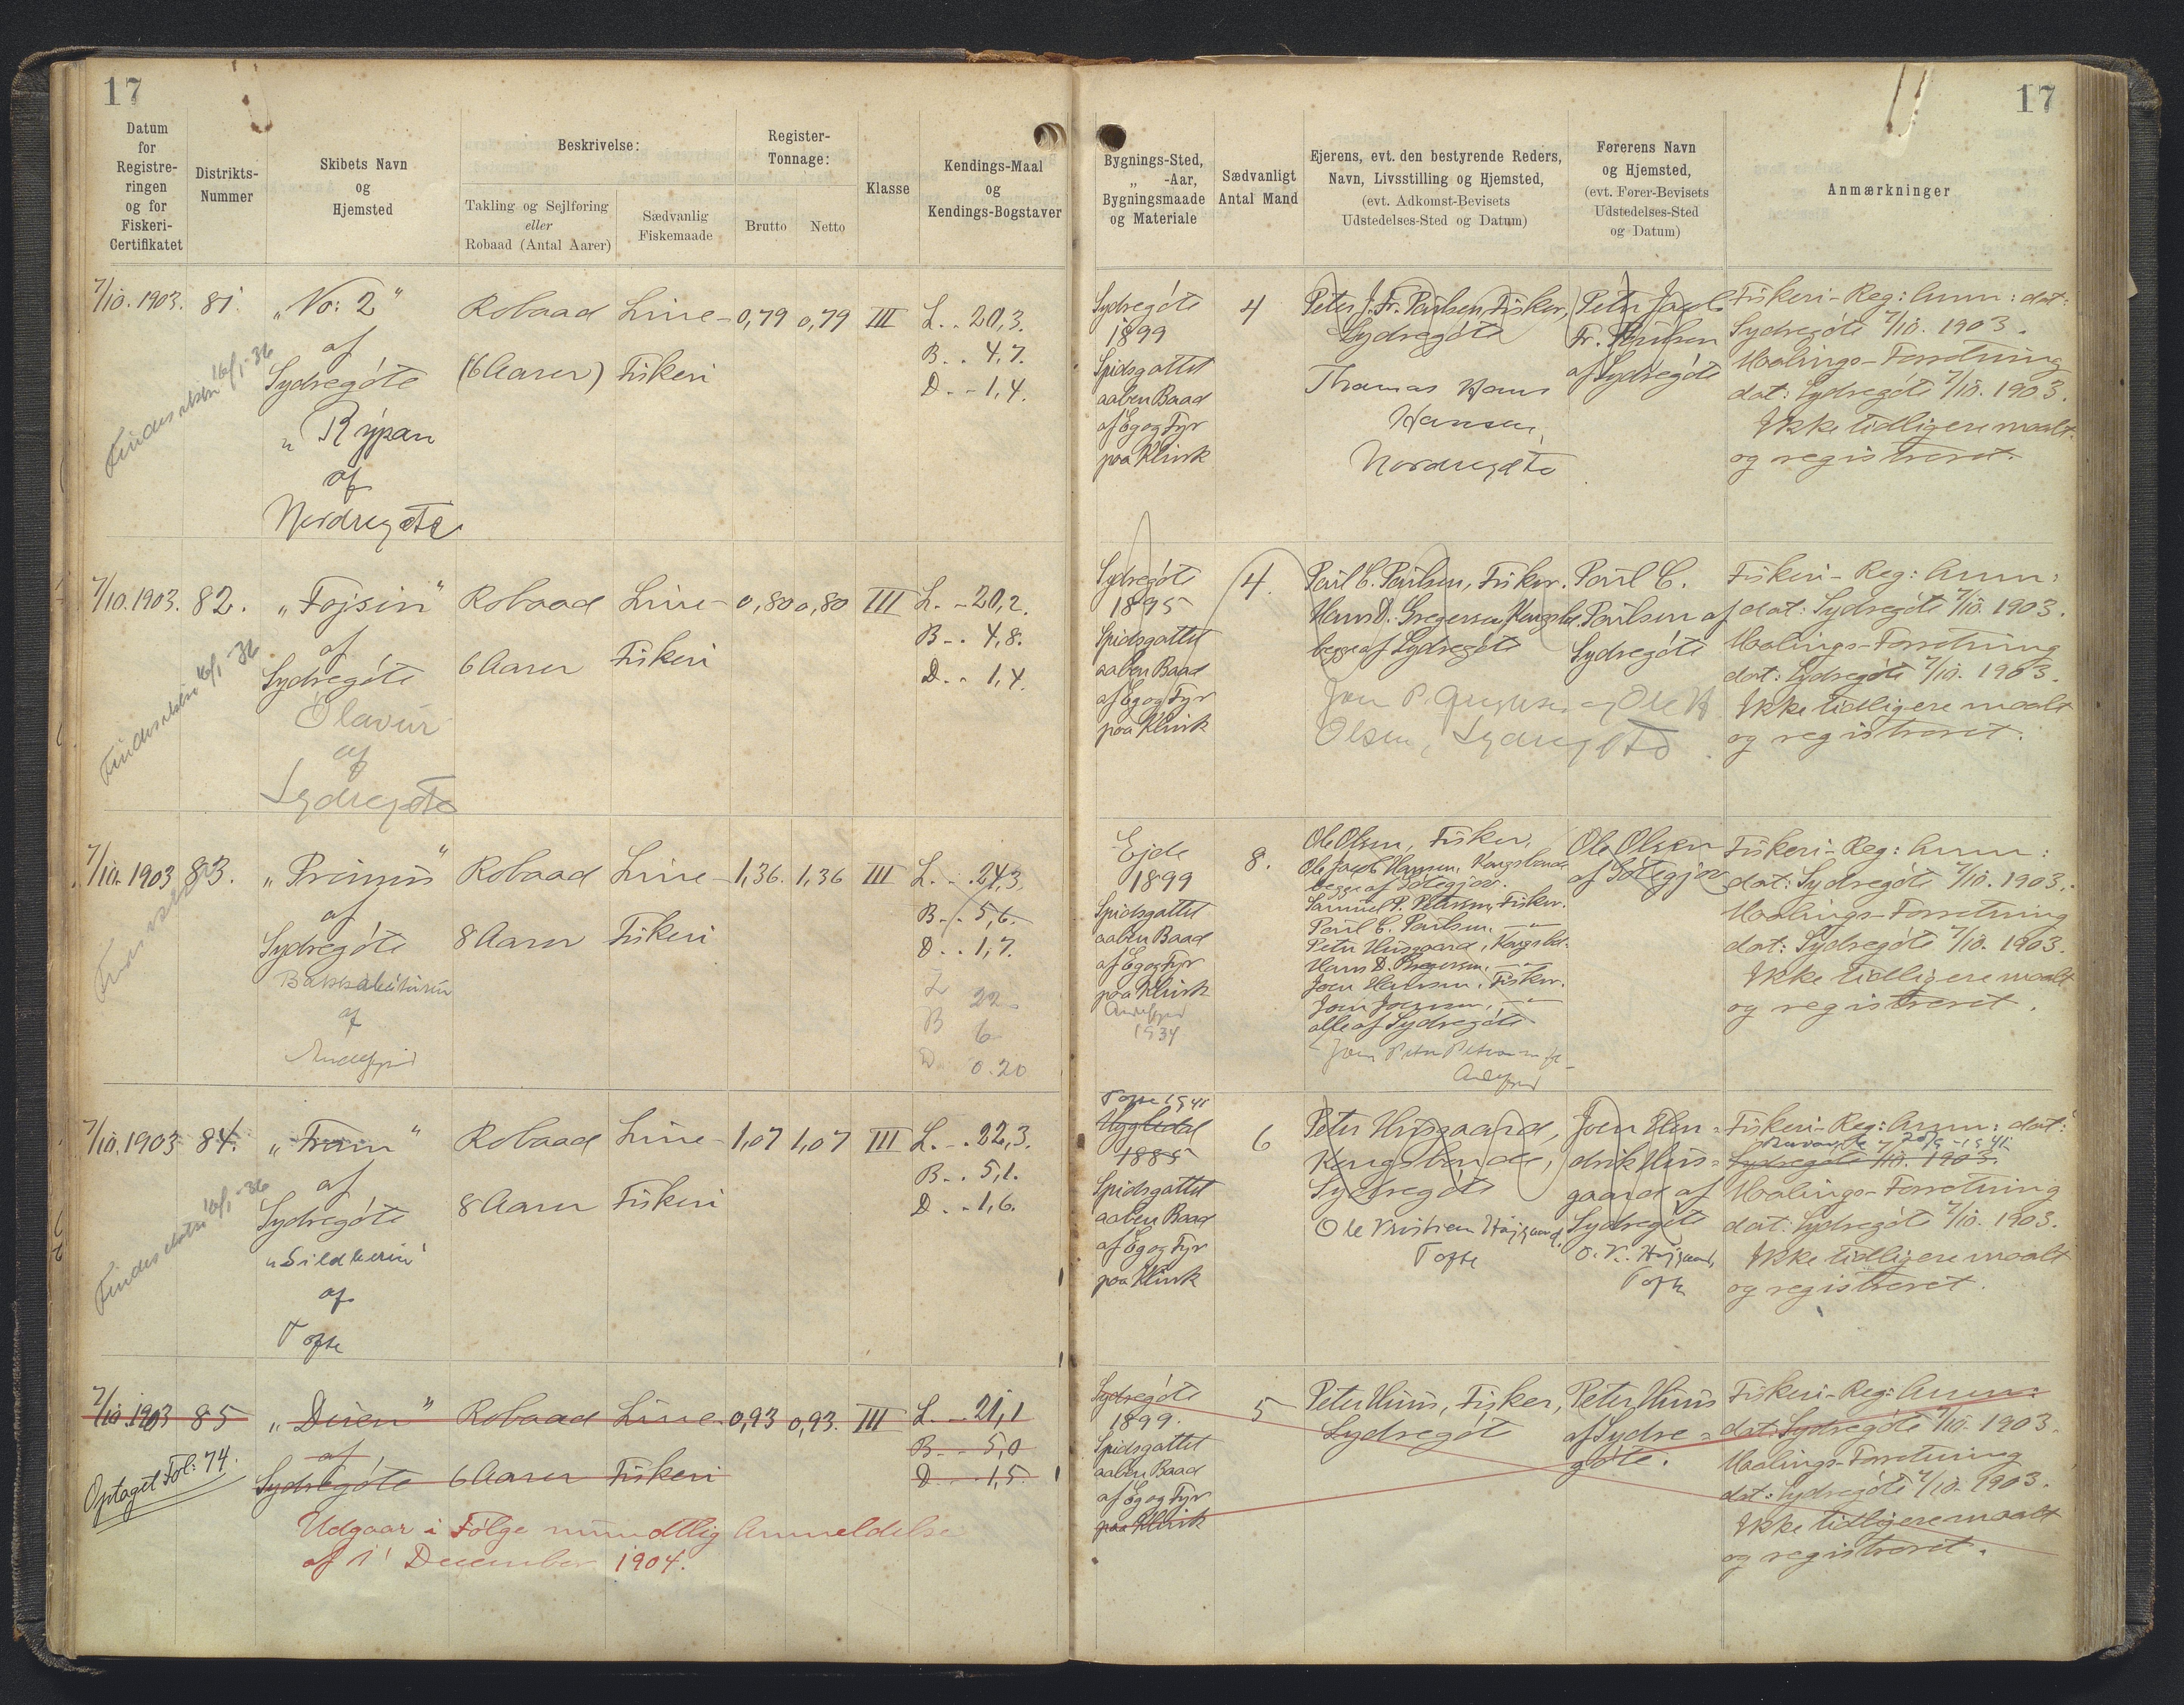 17
17
Datum for Registreringen og for Fiskeri-Certifikatet
Distrikts-Nummer
Skibets Navn og Hjemsted
Beskrivelse:
Takling og Sejlføring eller Robaad (Antal Aarer)
Sædvanlig Fiskemaade
Register-Tonnage:
Brutto
Netto
Klasse
Kendings-Maal og Kendings-Bogstaver
Bygnings-Sted, „ -Aar, Bygningsmaade og Materiale
Sædvanligt Antal Mand
Ejerens, evt. den bestyrende Reders, Navn, Livsstilling og Hjemsted, (evt. Adkomst-Bevisets Udstedelses-Sted og Datum)
Førerens Navn og Hjemsted, (evt. Fører-Bevisets Udstedelses-Sted og Datum)
Anmærkninger
7/10. 1903. 81. „No: 2" Robaad Line- 0,79 0,79 III L. . 20,3.
af
Sydregóte (6 Aarer) Fiskeri
B. . 4,7.
D. - 1,4.
Findes 16/1-36
„Rýpan
af
Nordregøte
Sydregóte
1899
Spidsgattet
aaben Baad
af Eg og Fyr
paa Klink
4
Peter J. Fr. Poulsen, Fisker,
Sydregóte
Thomas Hans
Hansen,
Nordregøte
Peter Jacob
Fr. Poulsen
af Sydregóte
Fiskeri-Reg: Anm: dat:
Sydregóte 7/10. 1903.
Maalings-Forretning
dat: Sydregóte 7/10. 1903.
Ikke tidligere maalt
og registreret.
7/10. 1903. 82. „Fojsin" Robaad Line- 0,80 0,80 III L. - 20,2.
af
Sydregóte 6 Aarer Fiskeri
B. . 4,8.
D. . 1,4.
Findes 16/1-36
Ólavur
af
Sydregøte
Sydregóte
1895
Spidsgattet
aaben Baad
af Eg og Fyr
paa Klink
4.
Poul C. Poulsen, Fisker.
Hans D. Gregersen, Kongsbd.
begge af Sydregóte
Olsen, Sydregøte
Poul C.
Poulsen af
Sydregóte
Fiskeri-Reg: Anm:
dat: Sydregóte 7/10. 1903.
Maalings-Forretning
dat: Sydregóte 7/10. 1903.
Ikke tidligere maalt
og registreret.
7/10. 1903 83. „Primus" Robaad Line- 1,36. 1,36 III L. . 24,3.
af
Sydregóte 8 Aarer Fiskeri
B. . 5,6.
D. . 1,7.
af
Andefjord
L 22
B 6
D 0.20
Ejde
1899
Spidsgattet
aaben Baad
af Eg og Fyr
paa Klink
Andefjord
1934
8.
Ole Olsen, Fisker,
Ole Jacob Hansen, Kongsbonde
begge af Götegjov.
Samuel P. Petersen, Fisker.
Poul C. Poulsen, -"-
Peter Husgaard, Kongsbd.
Hans D. Gregersen, -"-
Joen Hansen, Fisker.
Joen Joensen, -"-
alle af Sydregóte
Andefjord
Ole Olsen
af Götegjov
Fiskeri-Reg: Anm:
dat: Sydregóte 7/10. 1903.
Maalings-Forretning
dat: Sydregóte 7/10. 1903.
Ikke tidligere maalt
og registreret.
7/10. 1903 84. „Fram" Robaad Line- 1,07 1,07 III L. . 22,3.
af
Sydregóte 8 Aarer Fiskeri
B. . 5,1.
D. . 1,6.
Findes 16/1-36
„Sildberin"
af
Tofte
Tofte 1941
1885
Spidsgattet
aaben Baad
af Eg og Fyr
paa Klink
6
Peter Husgaard,
Kongsbonde,
Sydregóte
Ole Kristian Højgaard,
Tofte
Joen Hen=
drik Hus=
gaard af
Sydregóte
O. K. Højgaard,
Tofte
Fiskeri-Reg: Anm: dat:
Sydregóte 7/10. 1903.
Maalings-Forretning
dat: Sydregóte 7/10. 1903.
Ikke tidligere maalt
og registreret.
7/10. 1903 85 „Duen" Robaad Line- 0,93 0,93. III L. - 21,1
af
Sydregóte 6 Aarer Fiskeri
B. - 5,0
D. - 1,5.
Optaget Fol: 74.
Udgaar i Følge mundtlig Anmeldelse
af 1' December 1904.
Sydregóte
1899.
Spidsgattet
aaben Baad
af Eg og Fyr
paa Klink
5
Peter Huus, Fisker,
Sydregóte
Peter Huus
af Sydre=
góte.
Fiskeri-Reg: Anm:
dat: Sydregóte 7/10. 1903.
Maalings-Forretning
dat: Sydregóte 7/10. 1903.
Ikke tidligere maalt
og registreret.